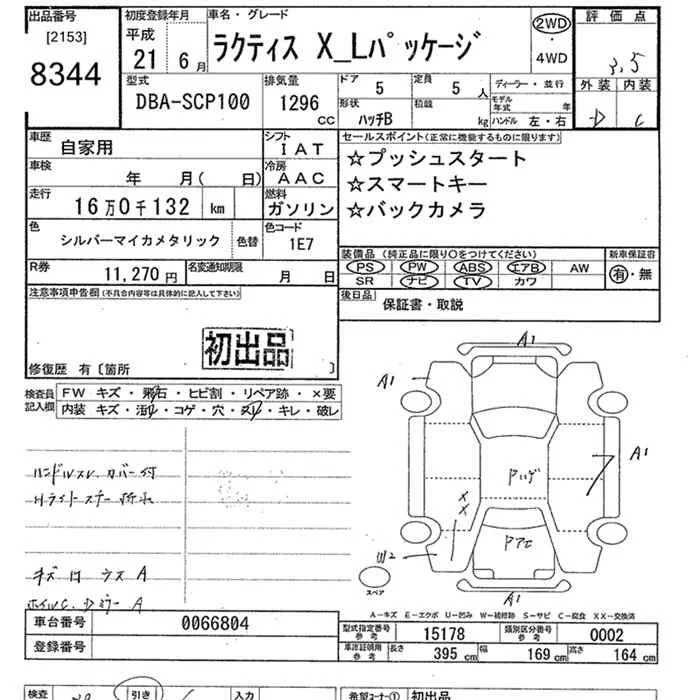 出品番号 初度登録年月 車名・グレード 評価点
[2153] 平成 2WD
8344 21 6月 ラクティス X_Lパッケージ ・ 3.5
4WD
型式 排気量 ドア 5 定員 5人 ディーラー・並行 外装 内装
DBA-SCP100 1296cc 形状 ハッチB 積載 kg モデル年式 年 D C
ハンドル 左・右
車歴 自家用 シフト IAT セールスポイント(正常に機能するものに限ります)
車検 年 月( 日) 冷房 AAC ☆プッシュスタート
走行 16万0千132 km 燃料 ガソリン ☆スマートキー
☆バックカメラ
色 シルバーマイカメタリック 色替 色コード 1E7
装備品(純正品に限り○をつけてください) 新車保証書
R券 11,270円 名変通知期限 月 日 PS PW ABS エアB AW 有・無
SR ナビ TV カワ
注意事項申告欄(不具合内容等は具体的に記入して下さい) 後日品 保証書・取説
初出品
修復歴 有〔箇所 〕
検査員記入欄 FW キズ・飛石・ヒビ割・リペア跡・×要
内装 キズ・汚れ・コゲ・穴・スレ・キレ・破レ
A1
A1
A1
ハンドルスレ カバー付
Hライトステー折れ
Pいげ
XX
Pアエ
W2
キズ凹 ウス A
スペア
A1
A-キズ E-エクボ U-凹み W-補修跡 S-サビ C-腐食 XX-交換済
車台番号 0066804
登録番号
型式指定番号参考 15178 類別区分番号参考 0002
車庫証明用参考 長さ 395 cm 幅 169 cm 高さ 164 cm
検査 引き 入力 希望コーナー① 初出品